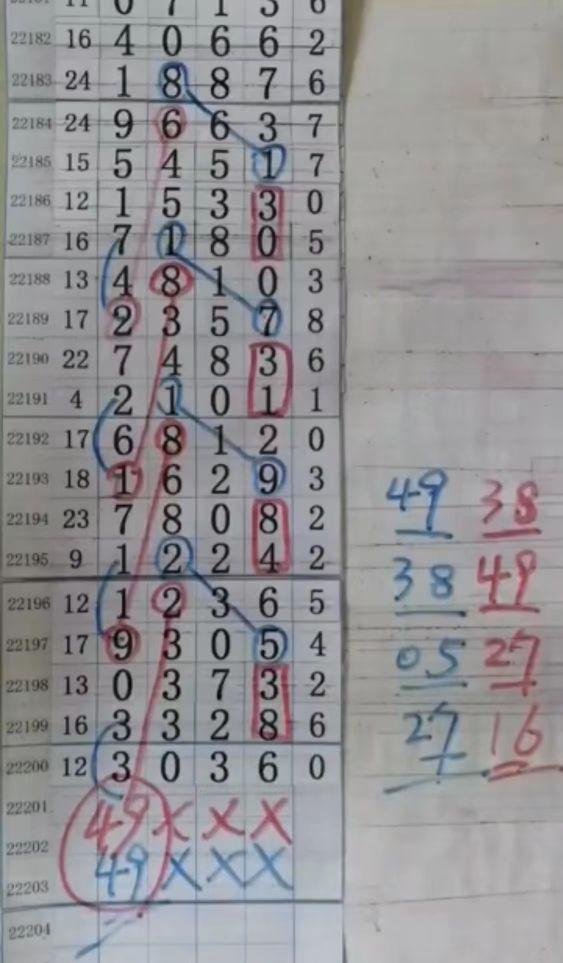 0 7 1 3 6
22182 16 4 0 6 6 2
22183 24 1 8 8 7 6
22184 24 9 6 6 3 7
22185 15 5 4 5 1 7
22186 12 1 5 3 3 0
22187 16 7 1 8 0 5
22188 13 4 8 1 0 3
22189 17 2 3 5 7 8
22190 22 7 4 8 3 6
22191 4 2 1 0 1 1
22192 17 6 8 1 2 0
22193 18 1 6 2 9 3
22194 23 7 8 0 8 2
22195 9 1 2 2 4 2
22196 12 1 2 3 6 5
22197 17 9 3 0 5 4
22198 13 0 3 7 3 2
22199 16 3 3 2 8 6
22200 12 3 0 3 6 0
22201 49 X X X
22202
49 X X X
22203
22204
49 38
38 49
05 27
27 16